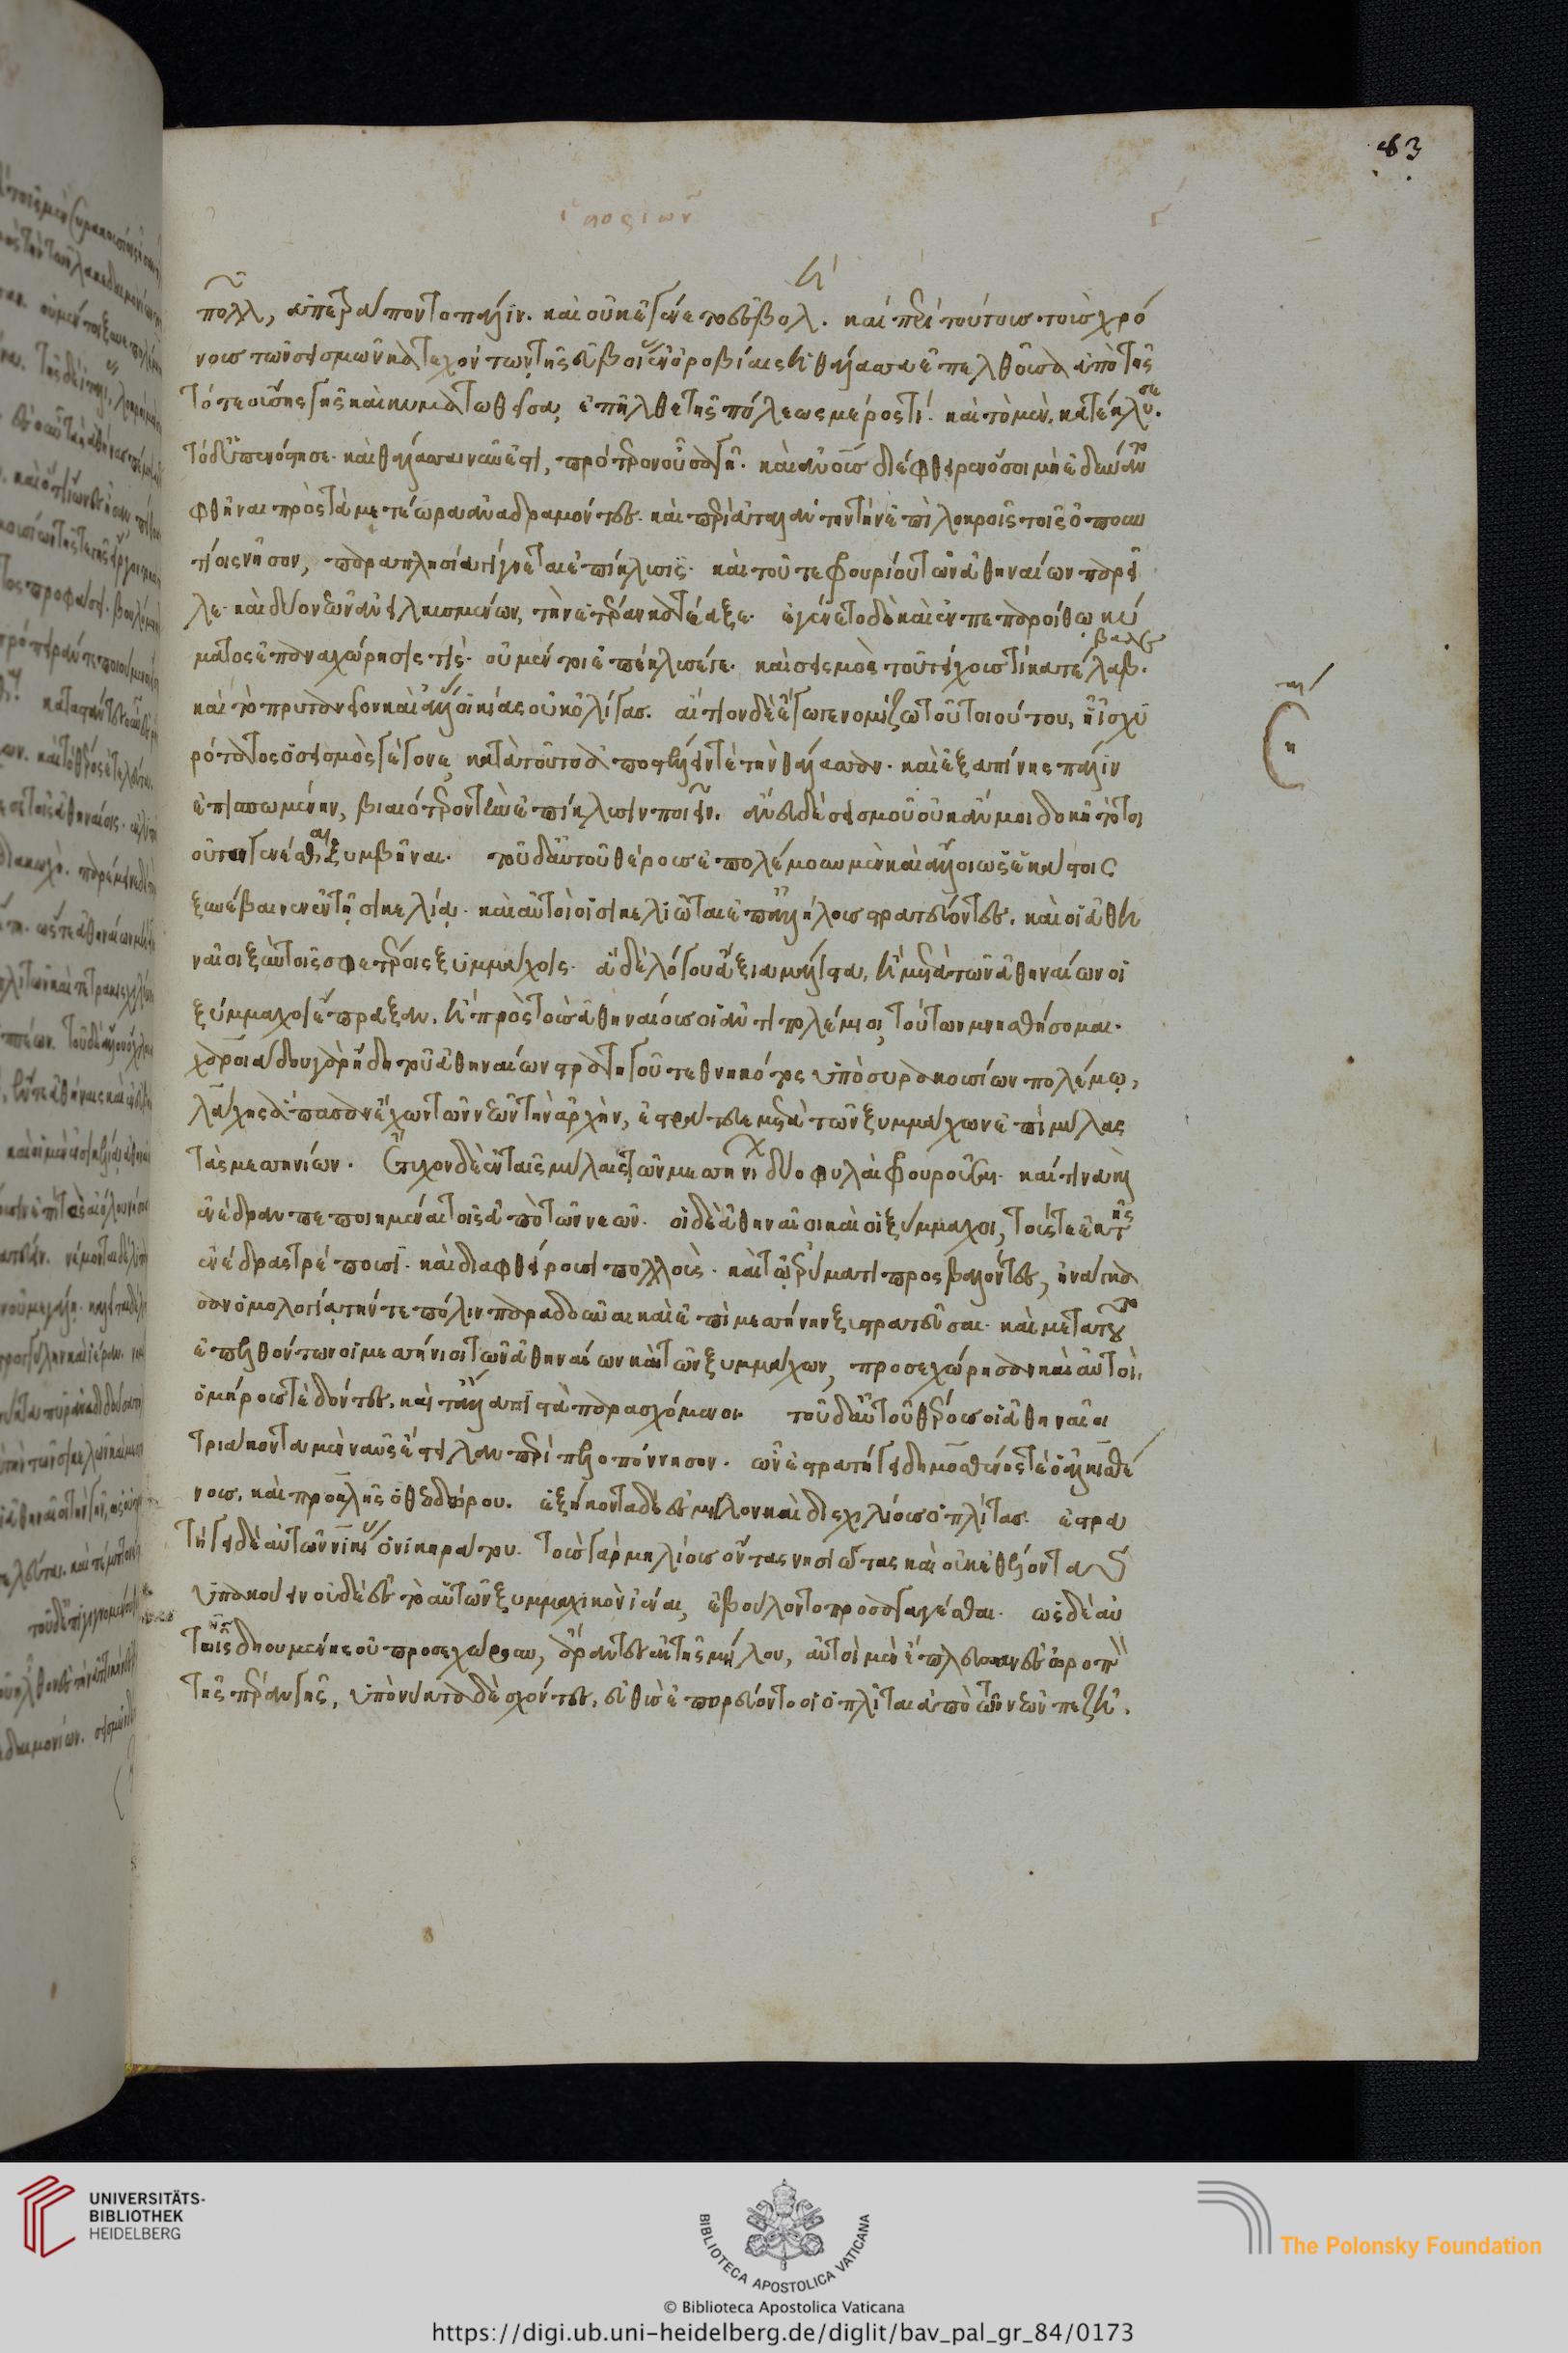 πολλῶν, ἀπετράποντο πάλιν. καὶ οὐκ ἐγένετο ἐσβολή. καὶ περὶ τούτους τοὺς χρό
νους τῶν σεισμῶν κατεχόντων τῆς εὐβοίας ἐν ὀροβίαις ἡ θάλασσα ἐπελθοῦσα ἀπὸ τῆς
τότε οὔσης γῆς καὶ κυματωθεῖσα, ἐπῆλθε τῆς πόλεως μέρος τί. καὶ τὸ μὲν, κατέκλυσε.
τὸ δ' ὑπενόστησε. καὶ θάλασσα νῦν ἐστι, πρότερον οὖσα γῆ. καὶ ἀνους διέφθειρεν ὅσοι μὴ ἐδύναντο
φθῆναι πρὸς τὰ μετέωρα ἀναδραμόντες. καὶ περὶ ἀταλάντην τὴν ἐπὶ λοκροῖς τοῖς ὀπουν
τίοις νῆσον, παραπλησία γίγνεται ἐπίκλυσις. καὶ τοῦ τε φρουρίου τῶν ἀθηναίων παρεῖ
λε. καὶ δύο νεῶν ἀνειλκυσμένων, τὴν ἑτέραν κατέαξε. ἐγένετο δὲ καὶ ἐν πεπαρήθω κύ
ματος ἐπαναχώρησίς τις. οὐ μέντοι ἐπέκλυσέ γε. καὶ σεισμὸς τοῦ τείχους τι κατέλαβε
καὶ τὸ πρυτανεῖον καὶ ἄλλας οἰκίας οὐκ ὀλίγας. αἴτιον δὲ ἔγωγε νομίζω τοῦ τοιούτου, ᾗ ἰσχυ
ρότατος ὁ σεισμὸς ἐγένετο, κατὰ τοῦτο ἀποστέλλειν τὲ τὴν θάλασσαν. καὶ ἐξαπίνης πάλιν
ἐπισπωμένην, βιαιότερον τὴν ἐπίκλυσιν ποιεῖν. ἄνευ δὲ σεισμοῦ οὐκ ἄν μοι δοκῇ τὸ τοι
οῦτον γενέσθαι ξυμβῆναι. τοῦ δ' αὐτοῦ θέρους ἐπολέμουν μὲν καὶ ἄλλοι ὡς ἑκάστοις
ξυνέβαινεν ἐν τῇ σικελίᾳ. καὶ αὐτοὶ οἱ σικελιῶται ἐπ' ἀλλήλους στρατεύοντες. καὶ οἱ ἀθη
ναῖοι ξὺν τοῖς σφετέροις ξυμμάχοις. ἃ δὲ λόγου ἄξια μάλιστα, ἢ μετὰ τῶν ἀθηναίων οἱ
ξύμμαχοι ἔπραξαν, ἢ πρὸς τοὺς ἀθηναίους οἱ ἀντιπολέμιοι, τούτων μνησθήσομαι.
χαροιάδου γὰρ ἤδη τοῦ ἀθηναίων στρατηγοῦ τεθνηκότος ὑπὸ συρακουσίων πολέμῳ,
λάχης ἅπασαν ἔχων τῶν νεῶν τὴν ἀρχὴν, ἐστράτευσε μετὰ τῶν ξυμμάχων ἐπὶ μύλας
τὰς μεσσηνίων. ἔτυχον δὲ ἐν ταῖς μύλαις τῶν μεσσηνίων δύο φυλαὶ φρουροῦσαι. καί τινα καὶ
ἐνέδραν πεποιημέναι τοῖς ἀπὸ τῶν νεῶν. οἱ δὲ ἀθηναῖοι καὶ οἱ ξύμμαχοι, τούς τε ἐκ τῆς
ἐνέδρας τρέπουσι. καὶ διαφθείρουσι πολλούς. καὶ τῷ ἐρύματι προσβαλόντες, ἠνάγκα
σαν ὁμολογίᾳ τήν τε πόλιν παραδοῦναι καὶ ἐπὶ μεσσήνην ξυστρατεῦσαι. καὶ μετὰ τοῦτο
ἐπελθόντων οἱ μεσσήνιοι τῶν ἀθηναίων καὶ τῶν ξυμμάχων, προσεχώρησαν καὶ αὐτοὶ,
ὁμήρους τὲ δόντες, καὶ τἄλλα πιστὰ παρασχόμενοι. τοῦ δ' αὐτοῦ θέρους οἱ ἀθηναῖοι
τριάκοντα μὲν ναῦς ἔστειλαν περὶ πελοπόννησον. ὧν ἐστρατήγει δημοσθένης τὲ ὁ ἀλκισθέ
νους, καὶ προκλῆς ὁ θεοδώρου. ἑξήκοντα δὲ ἐς μῆλον καὶ δισχιλίους ὁπλίτας. ἐστρα
τήγει δὲ αὐτῶν νικίας ὁ νικηράτου. τοὺς γὰρ μηλίους ὄντας νησιώτας καὶ οὐκ ἐθέλοντας
ὑπακούειν οὐδὲ ἐς τὸ αὐτῶν ξυμμαχικὸν ἰέναι, ἐβούλοντο προσαγαγέσθαι. ὡς δὲ αὐ
τοῖς δῃουμένης τῆς γῆς οὐ προσεχώρουν, ἄραντες ἐκ τῆς μήλου, αὐτοὶ μὲν ἔπλευσαν ἐς ὠρωπὸν
τῆς πέραν γῆς, ὑπὸ νύκτα δὲ σχόντες, εὐθὺς ἐπορεύοντο οἱ ὁπλῖται ἀπὸ τῶν νεῶν πεζῇ.
83
UNIVERSITÄTS-
BIBLIOTHEK
HEIDELBERG
BIBLIOTECA APOSTOLICA VATICANA
The Polonsky Foundation
© Biblioteca Apostolica Vaticana
https://digi.ub.uni-heidelberg.de/diglit/bav_pal_gr_84/0173